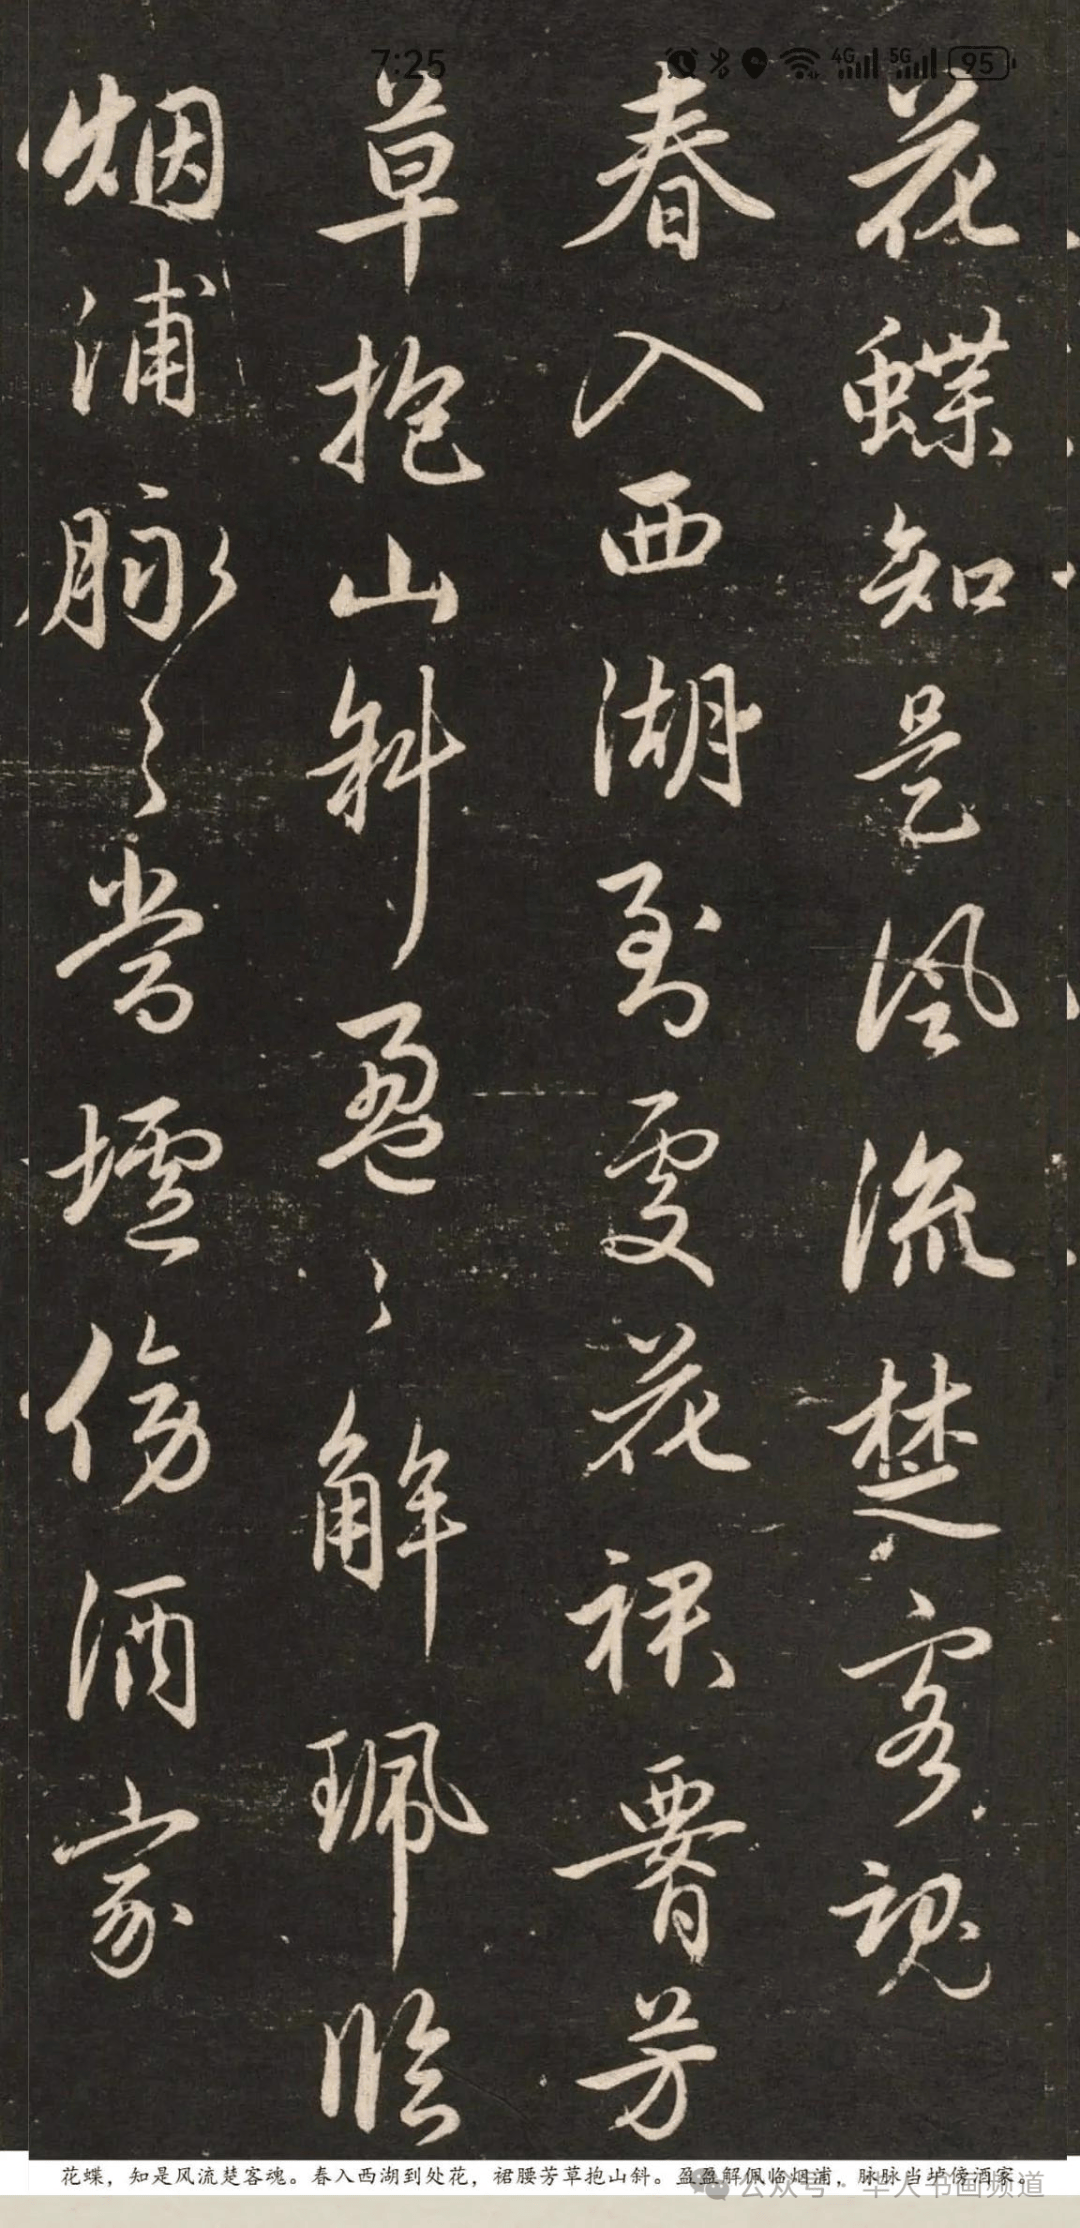 7:25 4G 5G 95
花蝶知是风流楚客魂
春入西湖到处花裙腰芳
草抱山斜盈〻解珮临
烟浦脉〻当垆傍酒家
花蝶，知是风流楚客魂。春入西湖到处花，裙腰芳草抱山斜。盈盈解佩临烟浦，脉脉当垆傍酒家。
公众号 · 华人书画频道